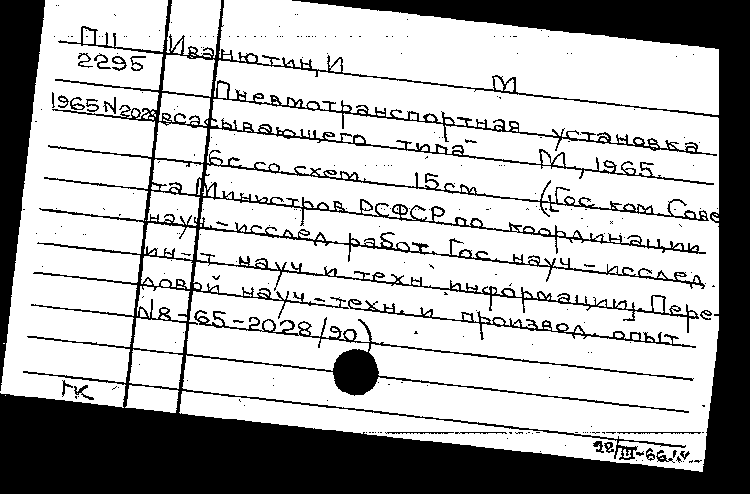 П11 Иванютин, И
2295 М
Пневмотранспортная установка
1965 N2028 всасывающего типа М., 1965.
6с. со схем. 15см (Гос ком. Сове
та Министров РСФСР по координации
науч.-исслед. работ. Гос. науч.-исслед.
ин-т науч и техн информации. Пере-
довой науч.-техн. и производ. опыт
N8-65-2028/90).
ГК